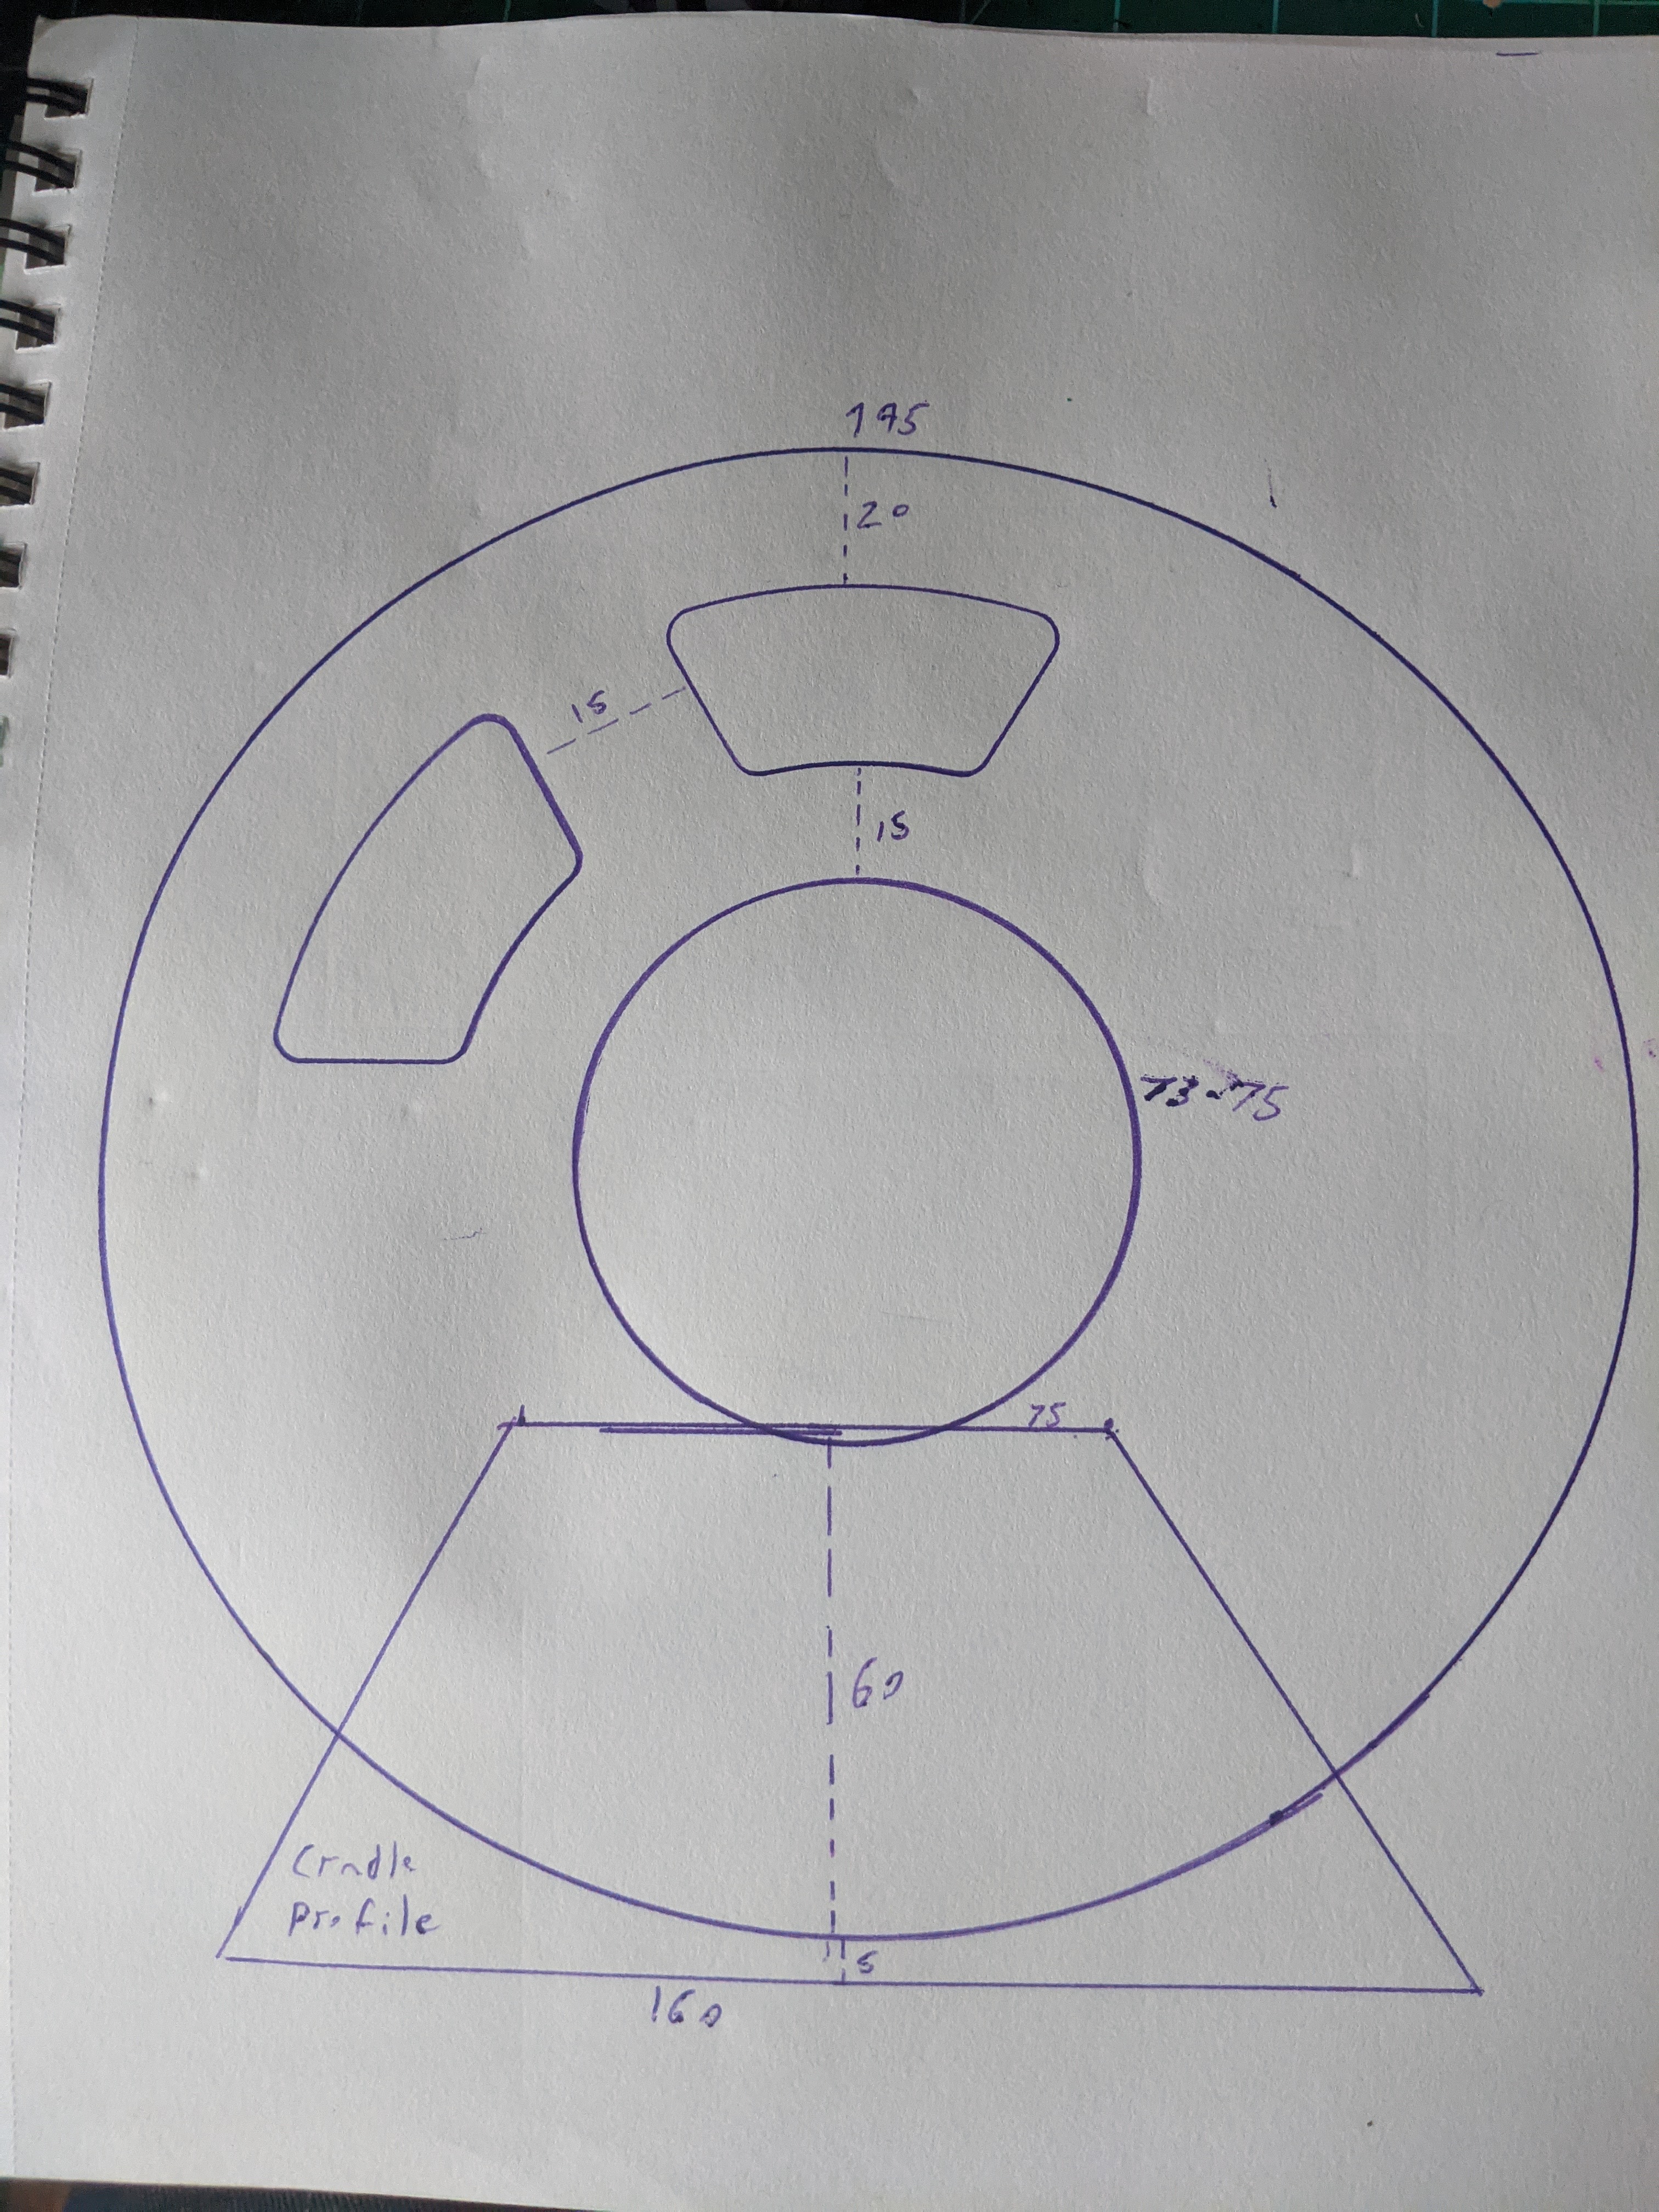 195
20
15
15
73-75
75
60
Cradle
Profile
5
160